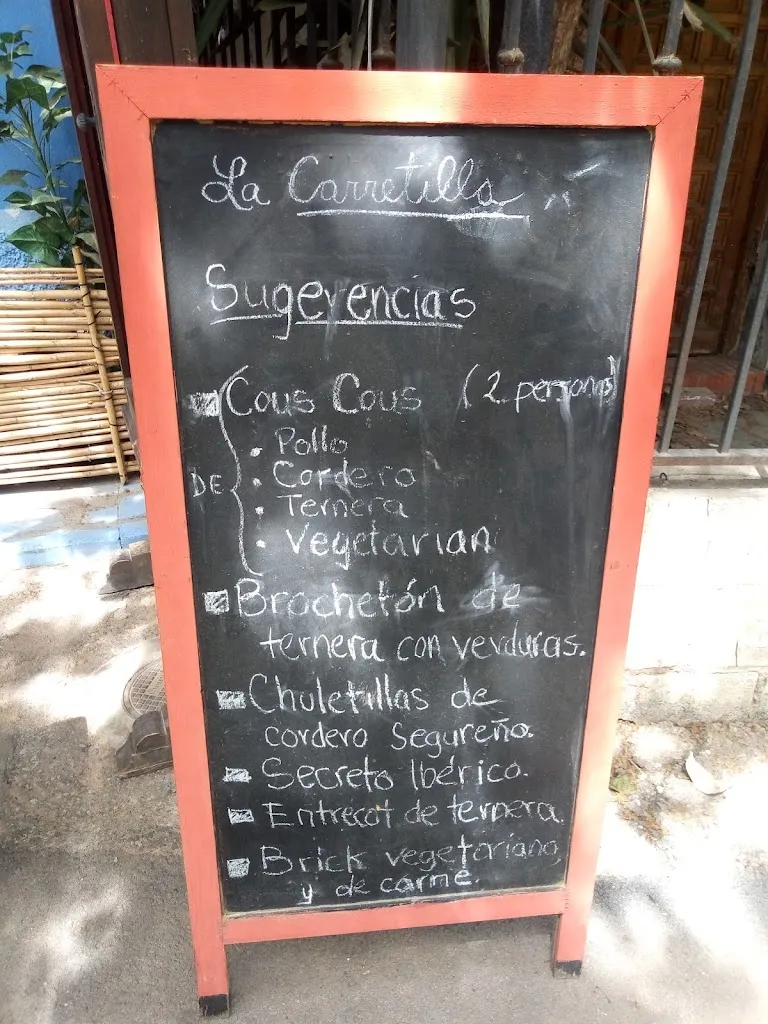 La Carretilla
Sugerencias
Cous Cous (2 personas)
DE
• Pollo
• Cordero
• Ternera
• Vegetarian
Brochetón de
ternera con verduras.
Chuletillas de
cordero Segureño.
Secreto Ibérico.
Entrecot de ternera.
Brick vegetariano,
y de carne.